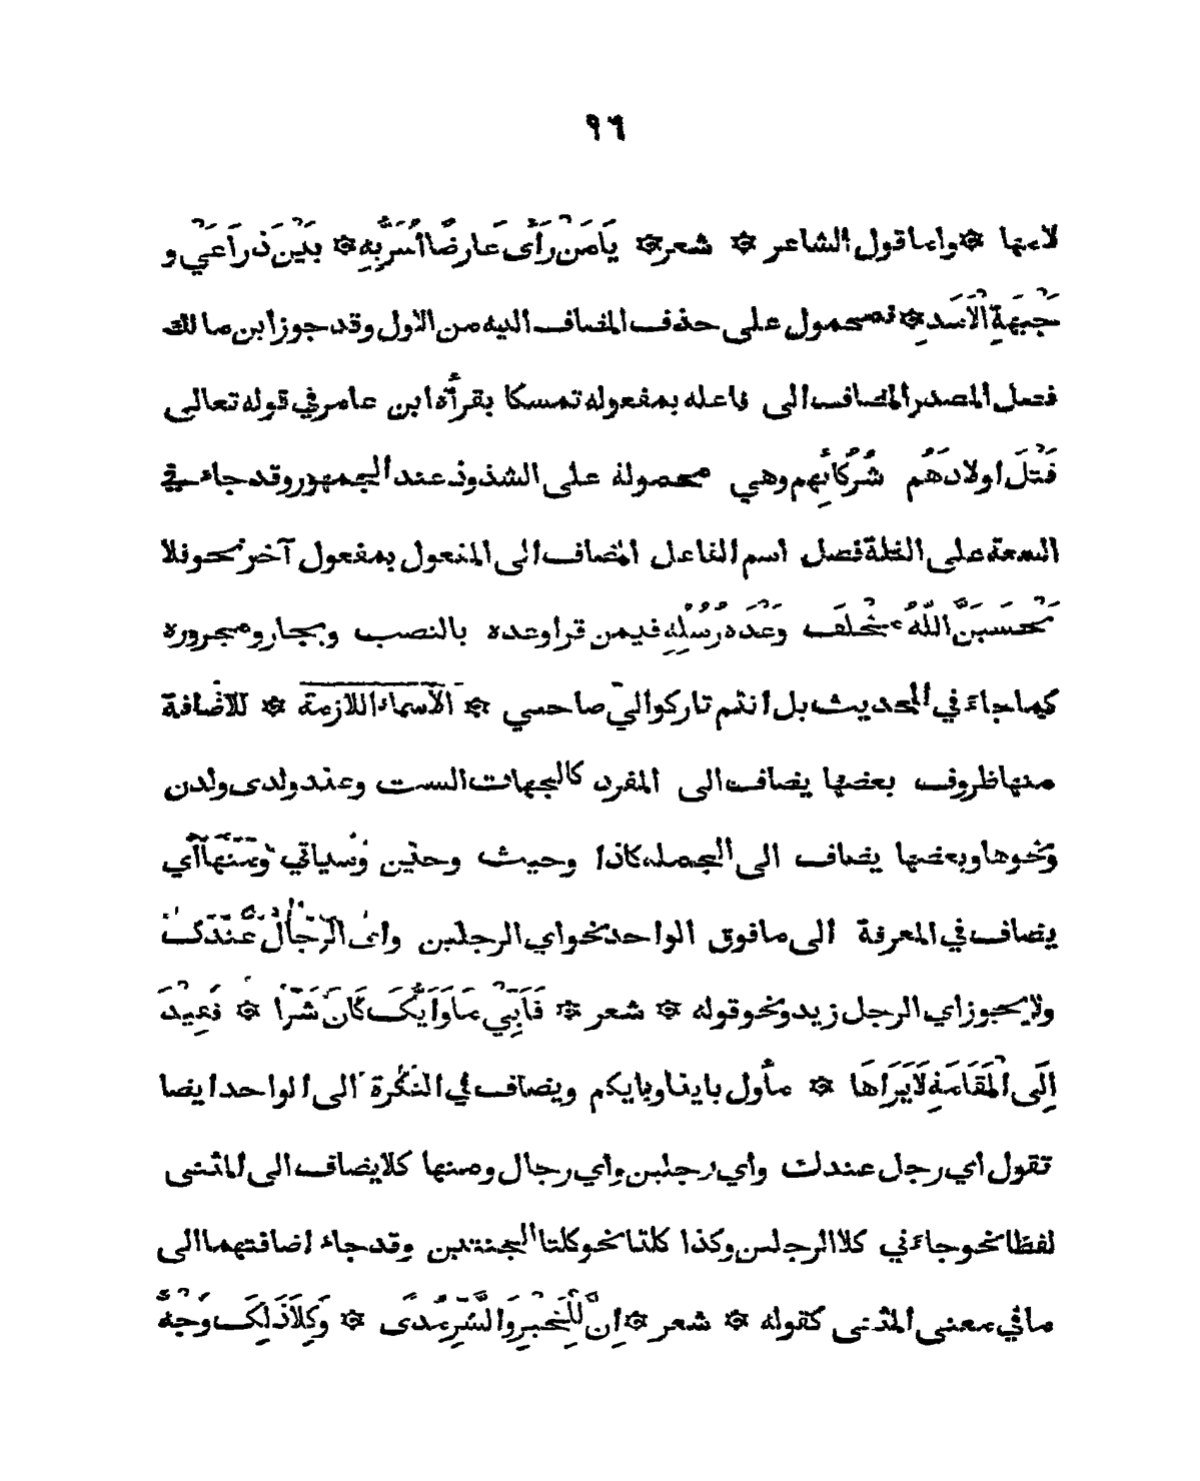 ٩٦
لامها ۞ واما قول الشاعر ۞ شعر ۞ يَامَنْ رَأَى عَارِضًا أُسَرُّبِهِ ۞ بَيْنَ ذِرَاعَيْ و
جَبْهَةِ الْاَسَدِ ۞ فمحمول على حذف المضاف اليه من الاول وقد جوز ابن مالك
فصل المصدر المضاف الى فاعله بمفعوله تمسكا بقرأة ابن عامر في قوله تعالى
قَتْلَ اولادَهُم شُرَكَائِهِم وهي محمولة على الشذوذ عند الجمهور وقد جاء في
السعة على القلة فصل اسم الفاعل المضاف الى المفعول بمفعول آخر نحو فلا
تَحْسَبَنَّ اللّٰهَ مُخْلِفَ وَعْدَهُ رُسُلِهِ فيمن قرا وعده بالنصب وبجار ومجروره
كما جاء في الحديث بل انتم تاركوا لي صاحبي ۞ الاسماء اللازمة ۞ للاضافة
منها ظروف بعضها يضاف الى المفرد كالجهات الست وعند ولدى ولدن
ونحوها وبعضها يضاف الى الجملة كاذا وحيث وحين وسياتي ومنها اي
يضاف في المعرفة الى مافوق الواحد نحو اي الرجلين واى الرِّجَالِ عِنْدَكَ
ولا يجوز اي الرجل زيد ونحو قوله ۞ شعر ۞ فَاَيِّيْ مَاوَاَيُّكَ كَانَ شَرًّا ۞ فَقِيْدَ
اِلَى الْمَقَامَةِ لَايَرَاهَا ۞ مأول باينا وبايكم ويضاف في النكرة الى الواحد ايضا
تقول اي رجل عندك واي رجلين واي رجال ومنها كلا يضاف الى المثنى
لفظا نحو جاء ني كلا الرجلين وكذا كلتا نحو كلتا الجنتين وقد جاء اضافتهما الى
ما في معنى المثنى كقوله ۞ شعر ۞ اِنَّ لِلْخَيْرِ وَالشَّرِّ مَدًى ۞ وَكِلَا ذٰلِكَ وَجْهٌ